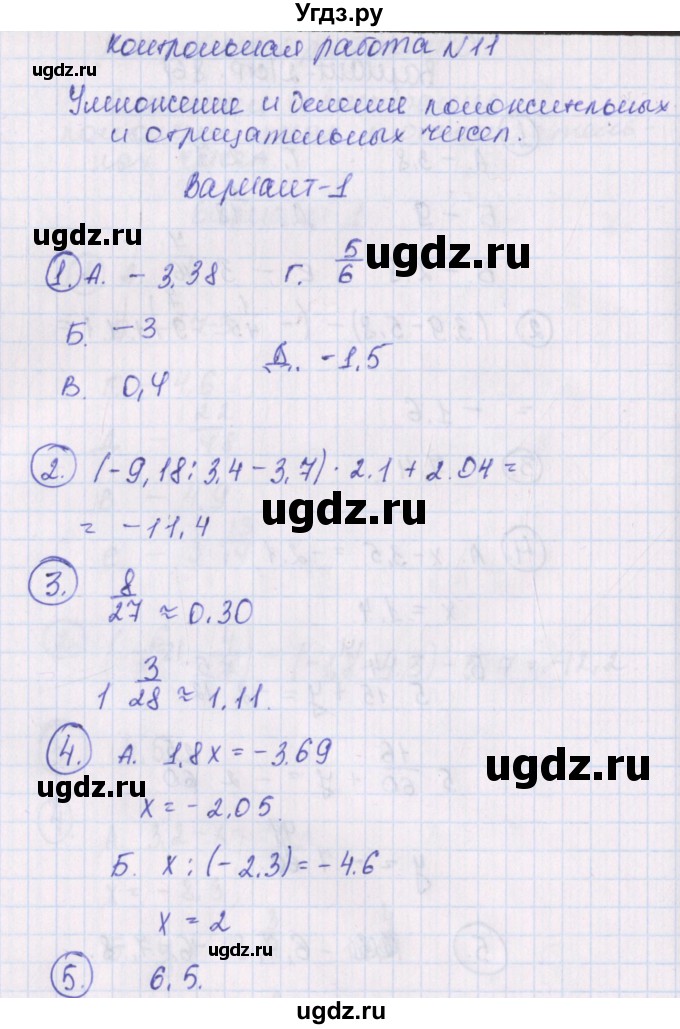 Угдз.ру
Контрольная работа N11
Умножение и деление положительных
и отрицательных чисел.
Вариант-1
1. А. -3,38 Г. 5/6
Б. -3
Д. -1,5
В. 0,4
2. (-9,18:3,4-3,7)·2.1+2.04=
= -11,4
3. 8/27 ≈ 0.30
1 3/28 ≈ 1,11.
4. А. 1,8x = -3.69
x = -2,05.
Б. x : (-2,3) = -4.6
x = 2
5. 6,5.
ugdz.ru
ugdz.ru
ugdz.ru
ugdz.ru
ugdz.ru
ugdz.ru
ugdz.ru
ugdz.ru
ugdz.ru
ugdz.ru
ugdz.ru